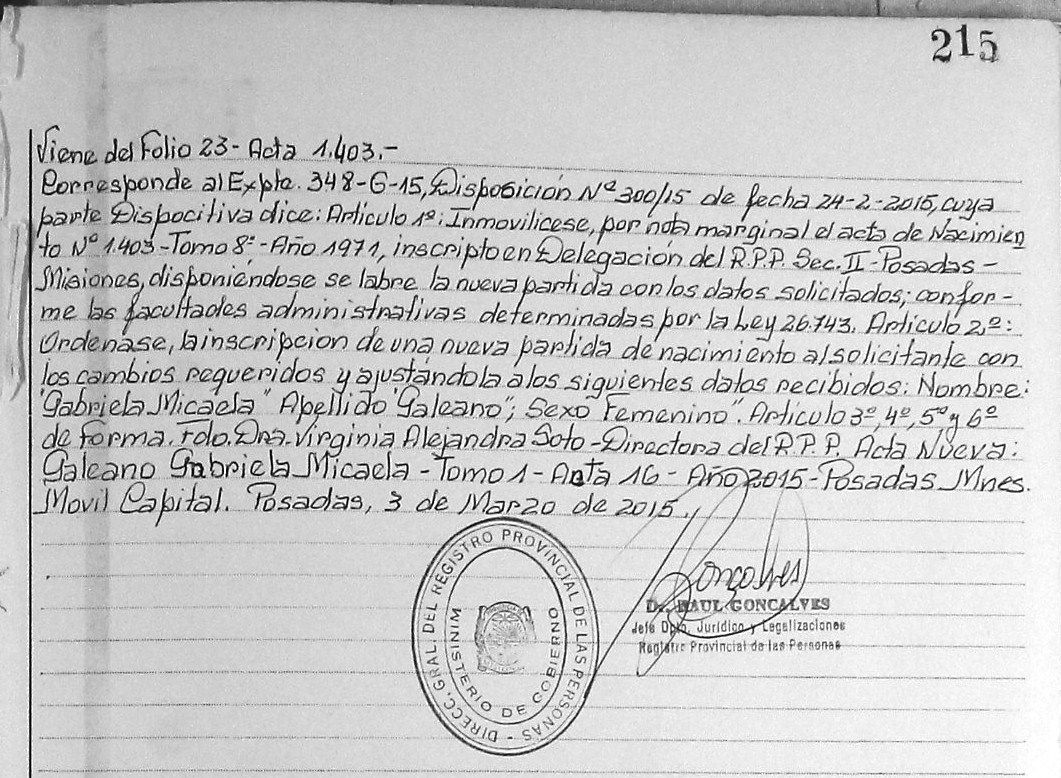 215
Viene del Folio 23- Acta 1.403.-
Corresponde al Expte. 348-G-15, Disposición Nº 300/15 de fecha 24-2-2015, cuya
parte Dispocitiva dice: Articulo 1º: Inmovilícese, por nota marginal el acta de Nacimien
to Nº 1.403-Tomo 8º-Año 1971, inscripto en Delegación del R.P.P. Sec. II-Posadas-
Misiones, disponiéndose se labre la nueva partida con los datos solicitados; confor-
me las facultades administrativas determinadas por la Ley 26.743. Articulo 2º:
Ordenase, la inscripcion de una nueva partida de nacimiento al solicitante con
los cambios requeridos y ajustándola a los siguientes datos recibidos: Nombre:
"Gabriela Micaela" Apellido "Galeano"; Sexo "Femenino". Articulo 3º, 4º, 5º y 6º
de forma. Fdo. Dra. Virginia Alejandra Soto-Directora del R.P.P. Acta Nueva:
Galeano Gabriela Micaela-Tomo 1-Acta 16-Año 2015-Posadas Mnes.
Movil Capital. Posadas, 3 de Marzo de 2015.
Goncalves
Dr. RAUL GONCALVES
Jefe Dpto. Jurídico y Legalizaciones
Registro Provincial de las Personas
DIRECC. GRAL. DEL REGISTRO PROVINCIAL DE LAS PERSONAS -
MINISTERIO DE GOBIERNO